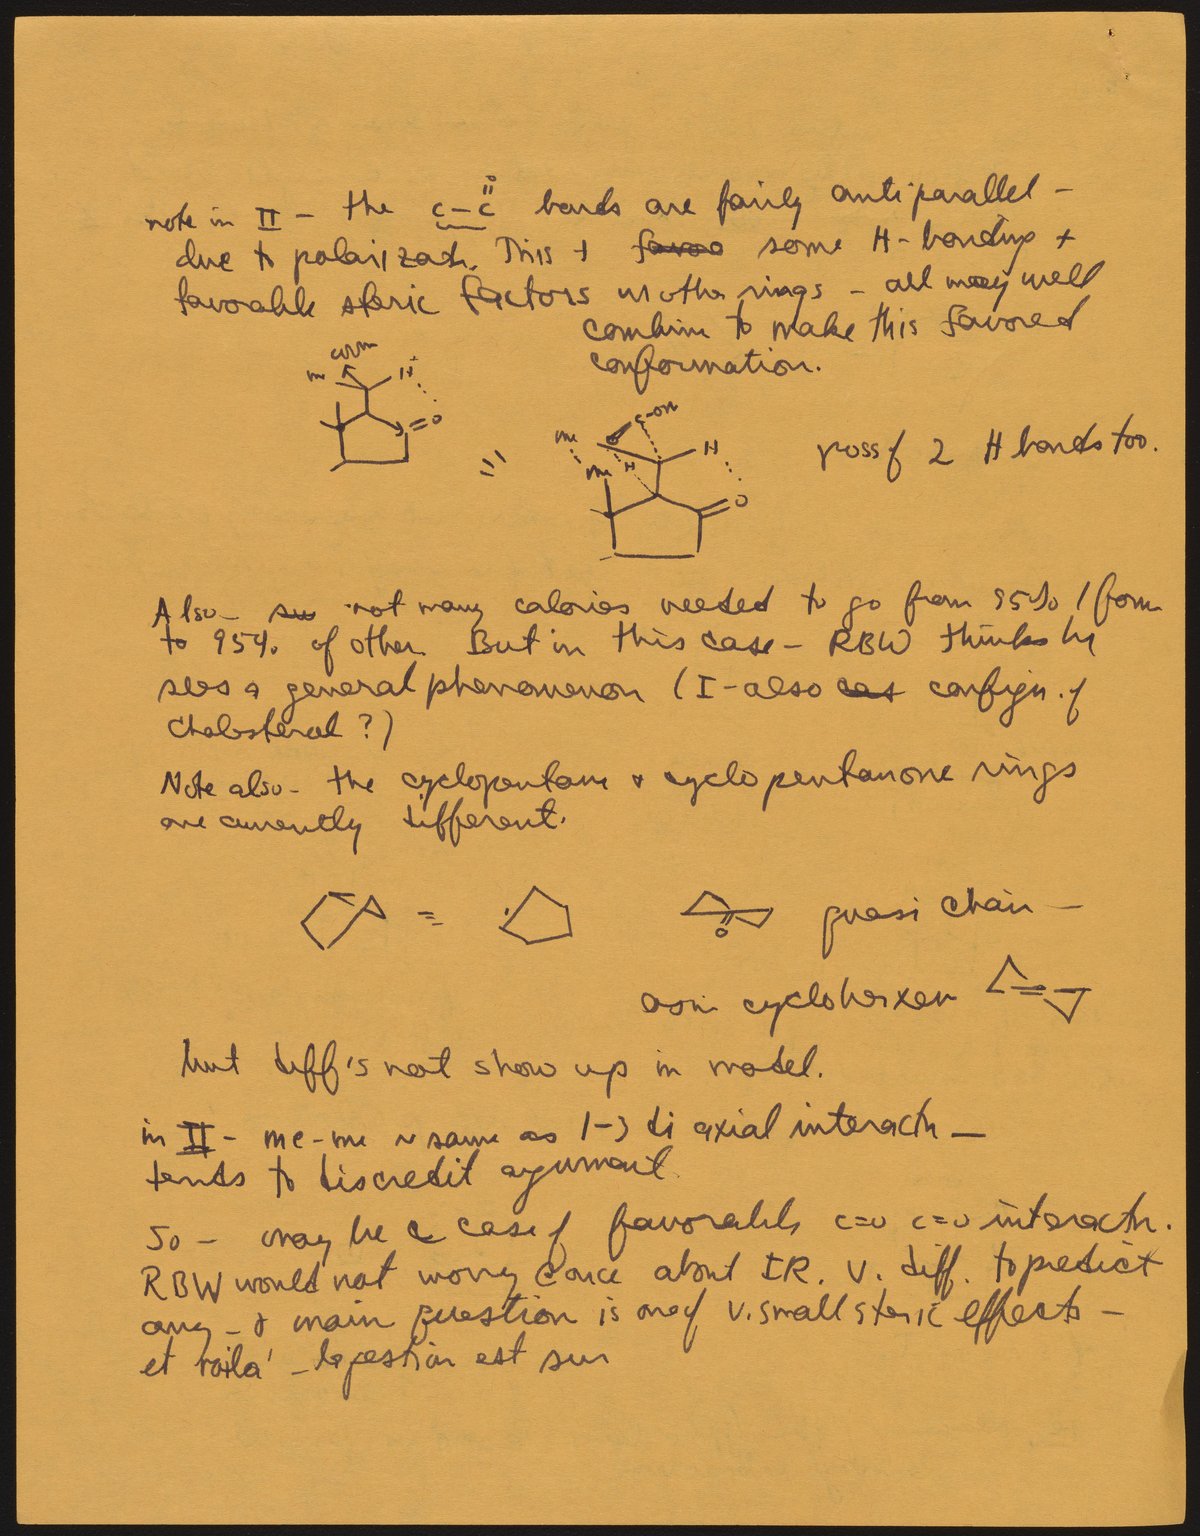 note in II – the C–C=O bonds are fairly antiparallel –
due to polarizatn. This + some H-bonding +
favorable steric factors w other rings – all may well
combine to make this favored
conformation.
Me H
O
Me C-OH H
H
Me
O
poss of 2 H bonds too.
Also – not many calories needed to go from 95% 1 form
to 95% of other. But in this case – RBW thinks he
sees a general phenomenon (I – also config. of
Cholesterol ?)
Note also – the cyclopentane & cyclopentanone rings
are currently different.
O
quasi chair –
as in cyclohexen
but diff's not show up in model.
in II – me-me ~ same as 1-3 di axial interactn –
tends to discredit argument
So – may be a case of favorable C=O C=O interactn.
RBW would not worry about IR. V. diff. to predict
any – & main question is one of v. small steric effects –
et voila' – est sur